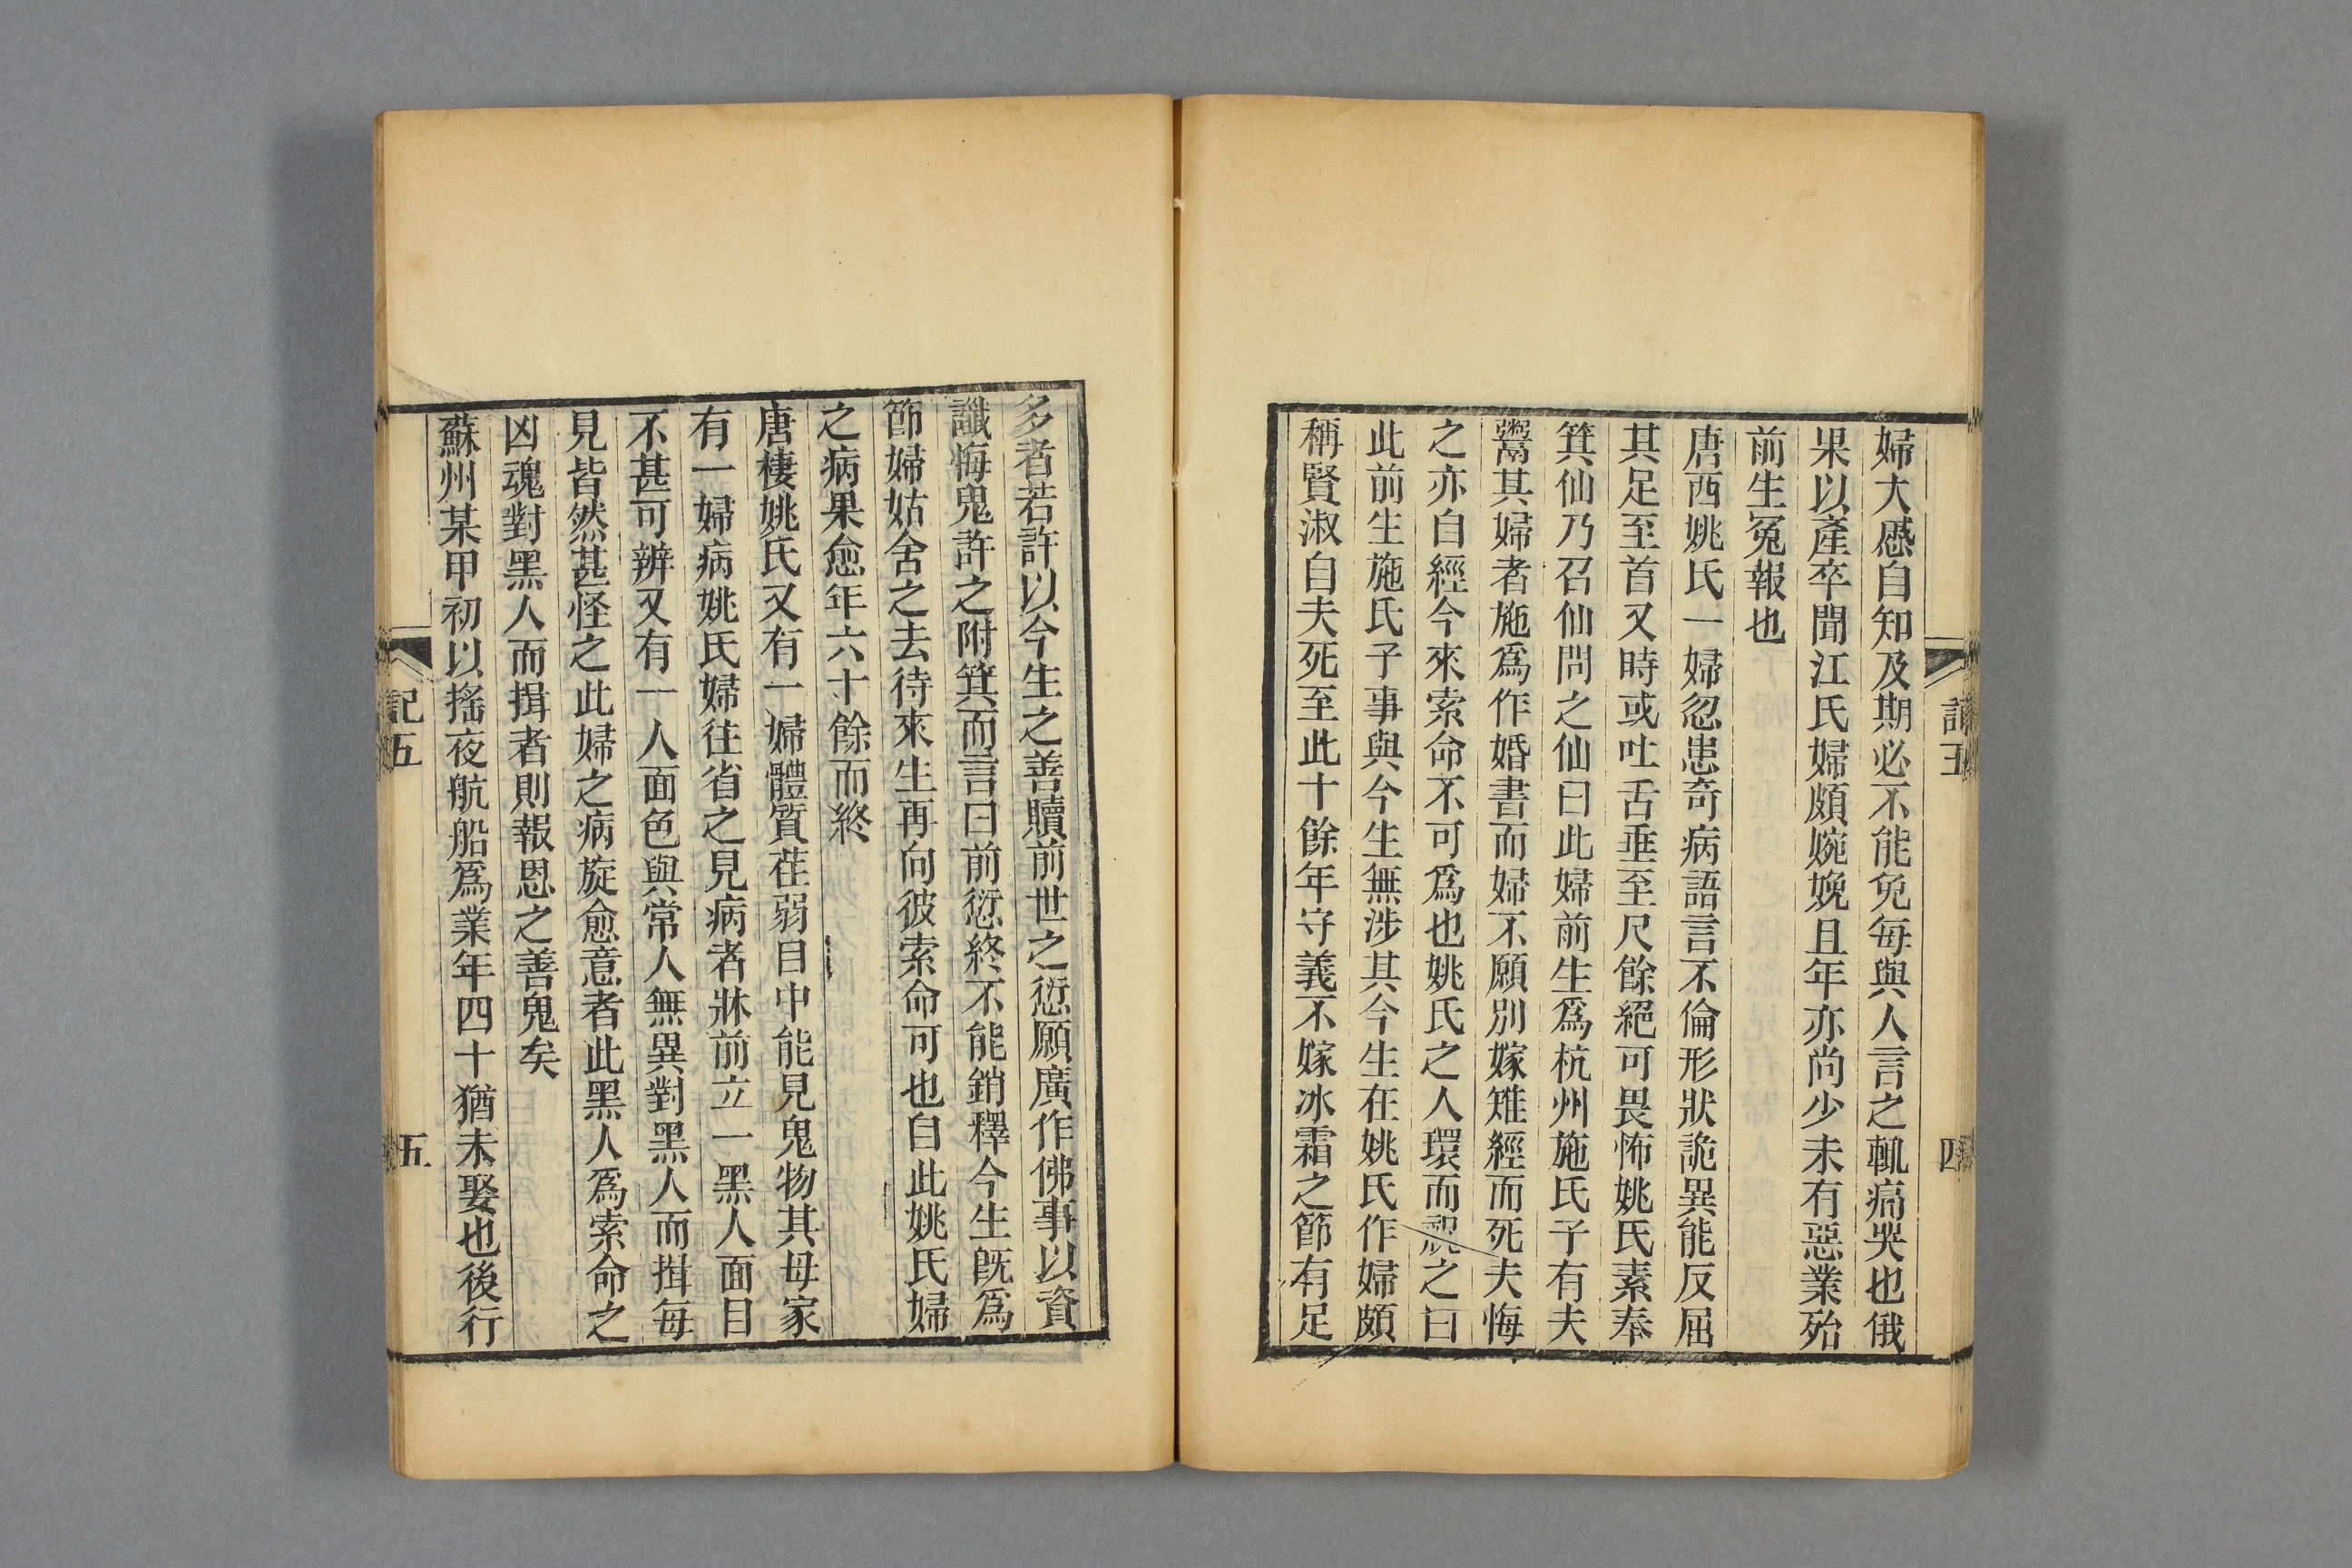 婦大慼自知及期必不能免每與人言之輒痛哭也俄
果以產卒聞江氏婦頗婉娩且年亦尚少未有惡業殆
前生冤報也
唐西姚氏一婦忽患奇病語言不倫形狀詭異能反屈
其足至首又時或吐舌垂至尺餘絕可畏怖姚氏素奉
箕仙乃召仙問之仙曰此婦前生爲杭州施氏子有夫
鬻其婦者施爲作婚書而婦不願別嫁雉經而死夫悔
之亦自經今來索命不可爲也姚氏之人環而祝之曰
此前生施氏子事與今生無涉其今生在姚氏作婦頗
稱賢淑自夫死至此十餘年守義不嫁冰霜之節有足
記五
四
多者若許以今生之善贖前世之愆願廣作佛事以資
讖悔鬼許之附箕而言曰前愆終不能銷釋今生旣爲
節婦姑舍之去待來生再向彼索命可也自此姚氏婦
之病果愈年六十餘而終
唐棲姚氏又有一婦體質荏弱目中能見鬼物其母家
有一婦病姚氏婦往省之見病者牀前立一黑人面目
不甚可辨又有一人面色與常人無異對黑人而揖每
見皆然甚怪之此婦之病旋愈意者此黑人爲索命之
凶魂對黑人而揖者則報恩之善鬼矣
蘇州某甲初以搖夜航船爲業年四十猶未娶也後行
記五
五